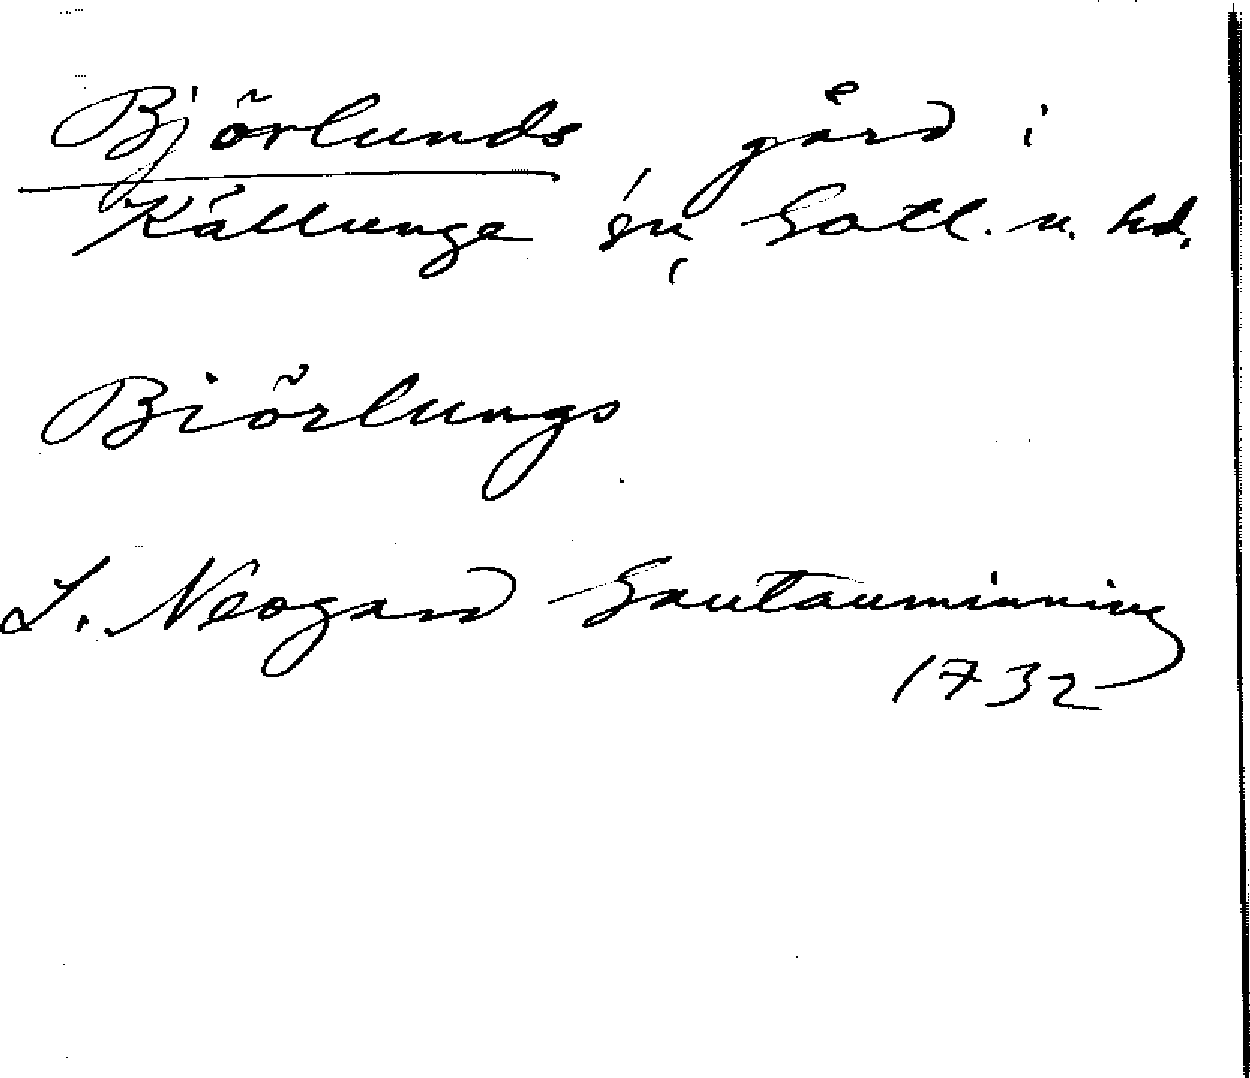 Björlunds gård i
Källunge sn, Gotl. n. hd.
Biörlungs
L. Neogard Gautauminning
1732